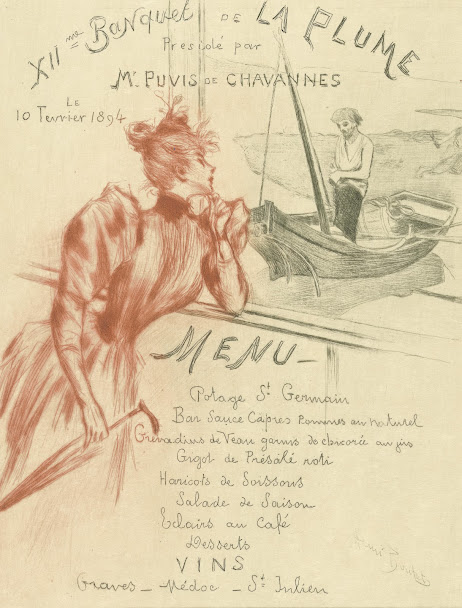 XIIme Banquet DE LA PLUME
Présidé par
Mr PUVIS DE CHAVANNES
LE
10 Fevrier 1894
MENU
Potage St Germain
Bar Sauce Capres Pommes au naturel
Grenadins de Veau garnis de chicorée au jus
Gigot de Présalé roti
Haricots de Soissons
Salade de Saison
Eclairs au Café
Desserts
VINS
Graves _ Médoc _ St Julien